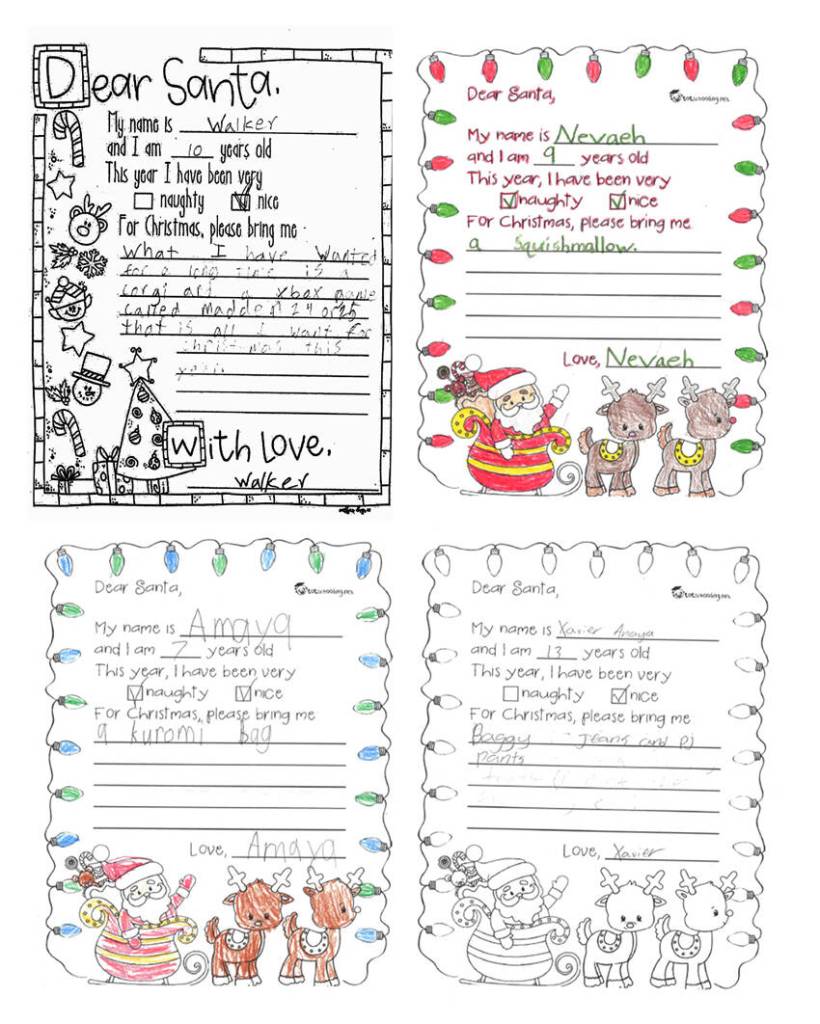 Dear Santa,
My name is Walker
and I am 10 years old
This year I have been very
naughty nice
For Christmas, please bring me
What I have Wanted
for a long time is a
corgi and a xbox game
called madden 24 or 25
that is all I want for
christmas this
year
With Love,
Walker
Dear Santa,
My name is Nevaeh
and I am 9 years old
This year, I have been very
naughty nice
For Christmas, please bring me
a Squishmallow.
Love, Nevaeh
Dear Santa,
My name is Amaya
and I am 7 years old
This year, I have been very
naughty nice
For Christmas, please bring me
a kuromi bag
Love, Amaya
Dear Santa,
My name is Xavier Amaya
and I am 13 years old
This year, I have been very
naughty nice
For Christmas, please bring me
Baggy Jeans and PJ
pants
Love, Xavier